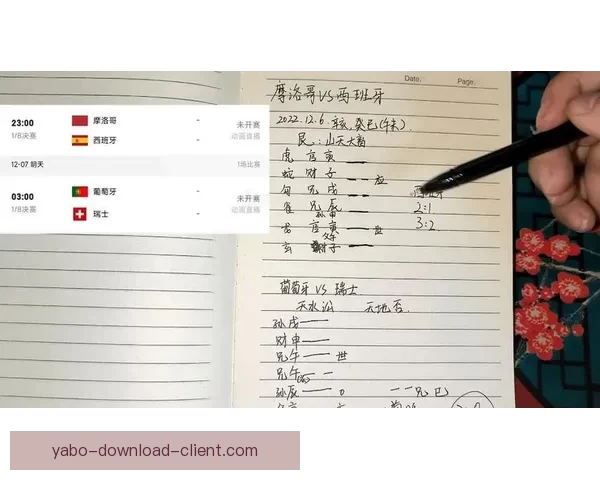 23:00
1/8决赛
摩洛哥 -
西班牙 -
未开赛
动画直播
12-07 明天
1场比赛
03:00
1/8决赛
葡萄牙 -
瑞士 -
未开赛
动画直播
Date. Page.
摩洛哥VS西班牙
2022.12.6. 癸巳(午未).
艮:山天大畜
虎 官寅
蛇 财子 应
勾 兄戌
雀 兄辰
2:1
官寅 世
3:2
玄 财子
葡萄牙 VS 瑞士
天水讼 天地否.
孙戌
财申
兄午 世
兄午
孙辰 0 兄巳
yabo-download-client.com